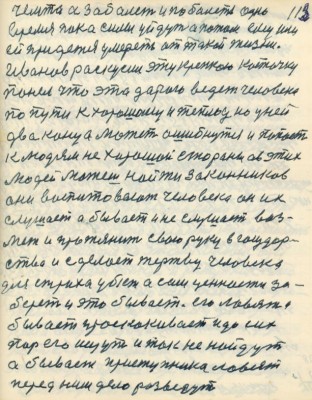 113
чем та а забалеет и побалеть одно
время пока силы уйдут а потом ему или
ей придется умереть от такой жизни.
Иванов раскусил эту крепкою кеточку
понял что эта дорога ведет человека
по пути к хорошому и теплому но у ней
два конца может ошибнутся и попасть
к людям не хорошой стороны а в этих
людей можеш найти законников
они воспитовают человека он их
слушает а бывает и не слушает воз-
мет и протянит свою руку в государ-
ство и сделает жертву человека
для страха убьет а сам ценности за-
берет и это бывает. его ловят
бывает проскакивает и до сих
пор его ищут и так не найдут
а бывает приступника ловят
перед ним дело разведут